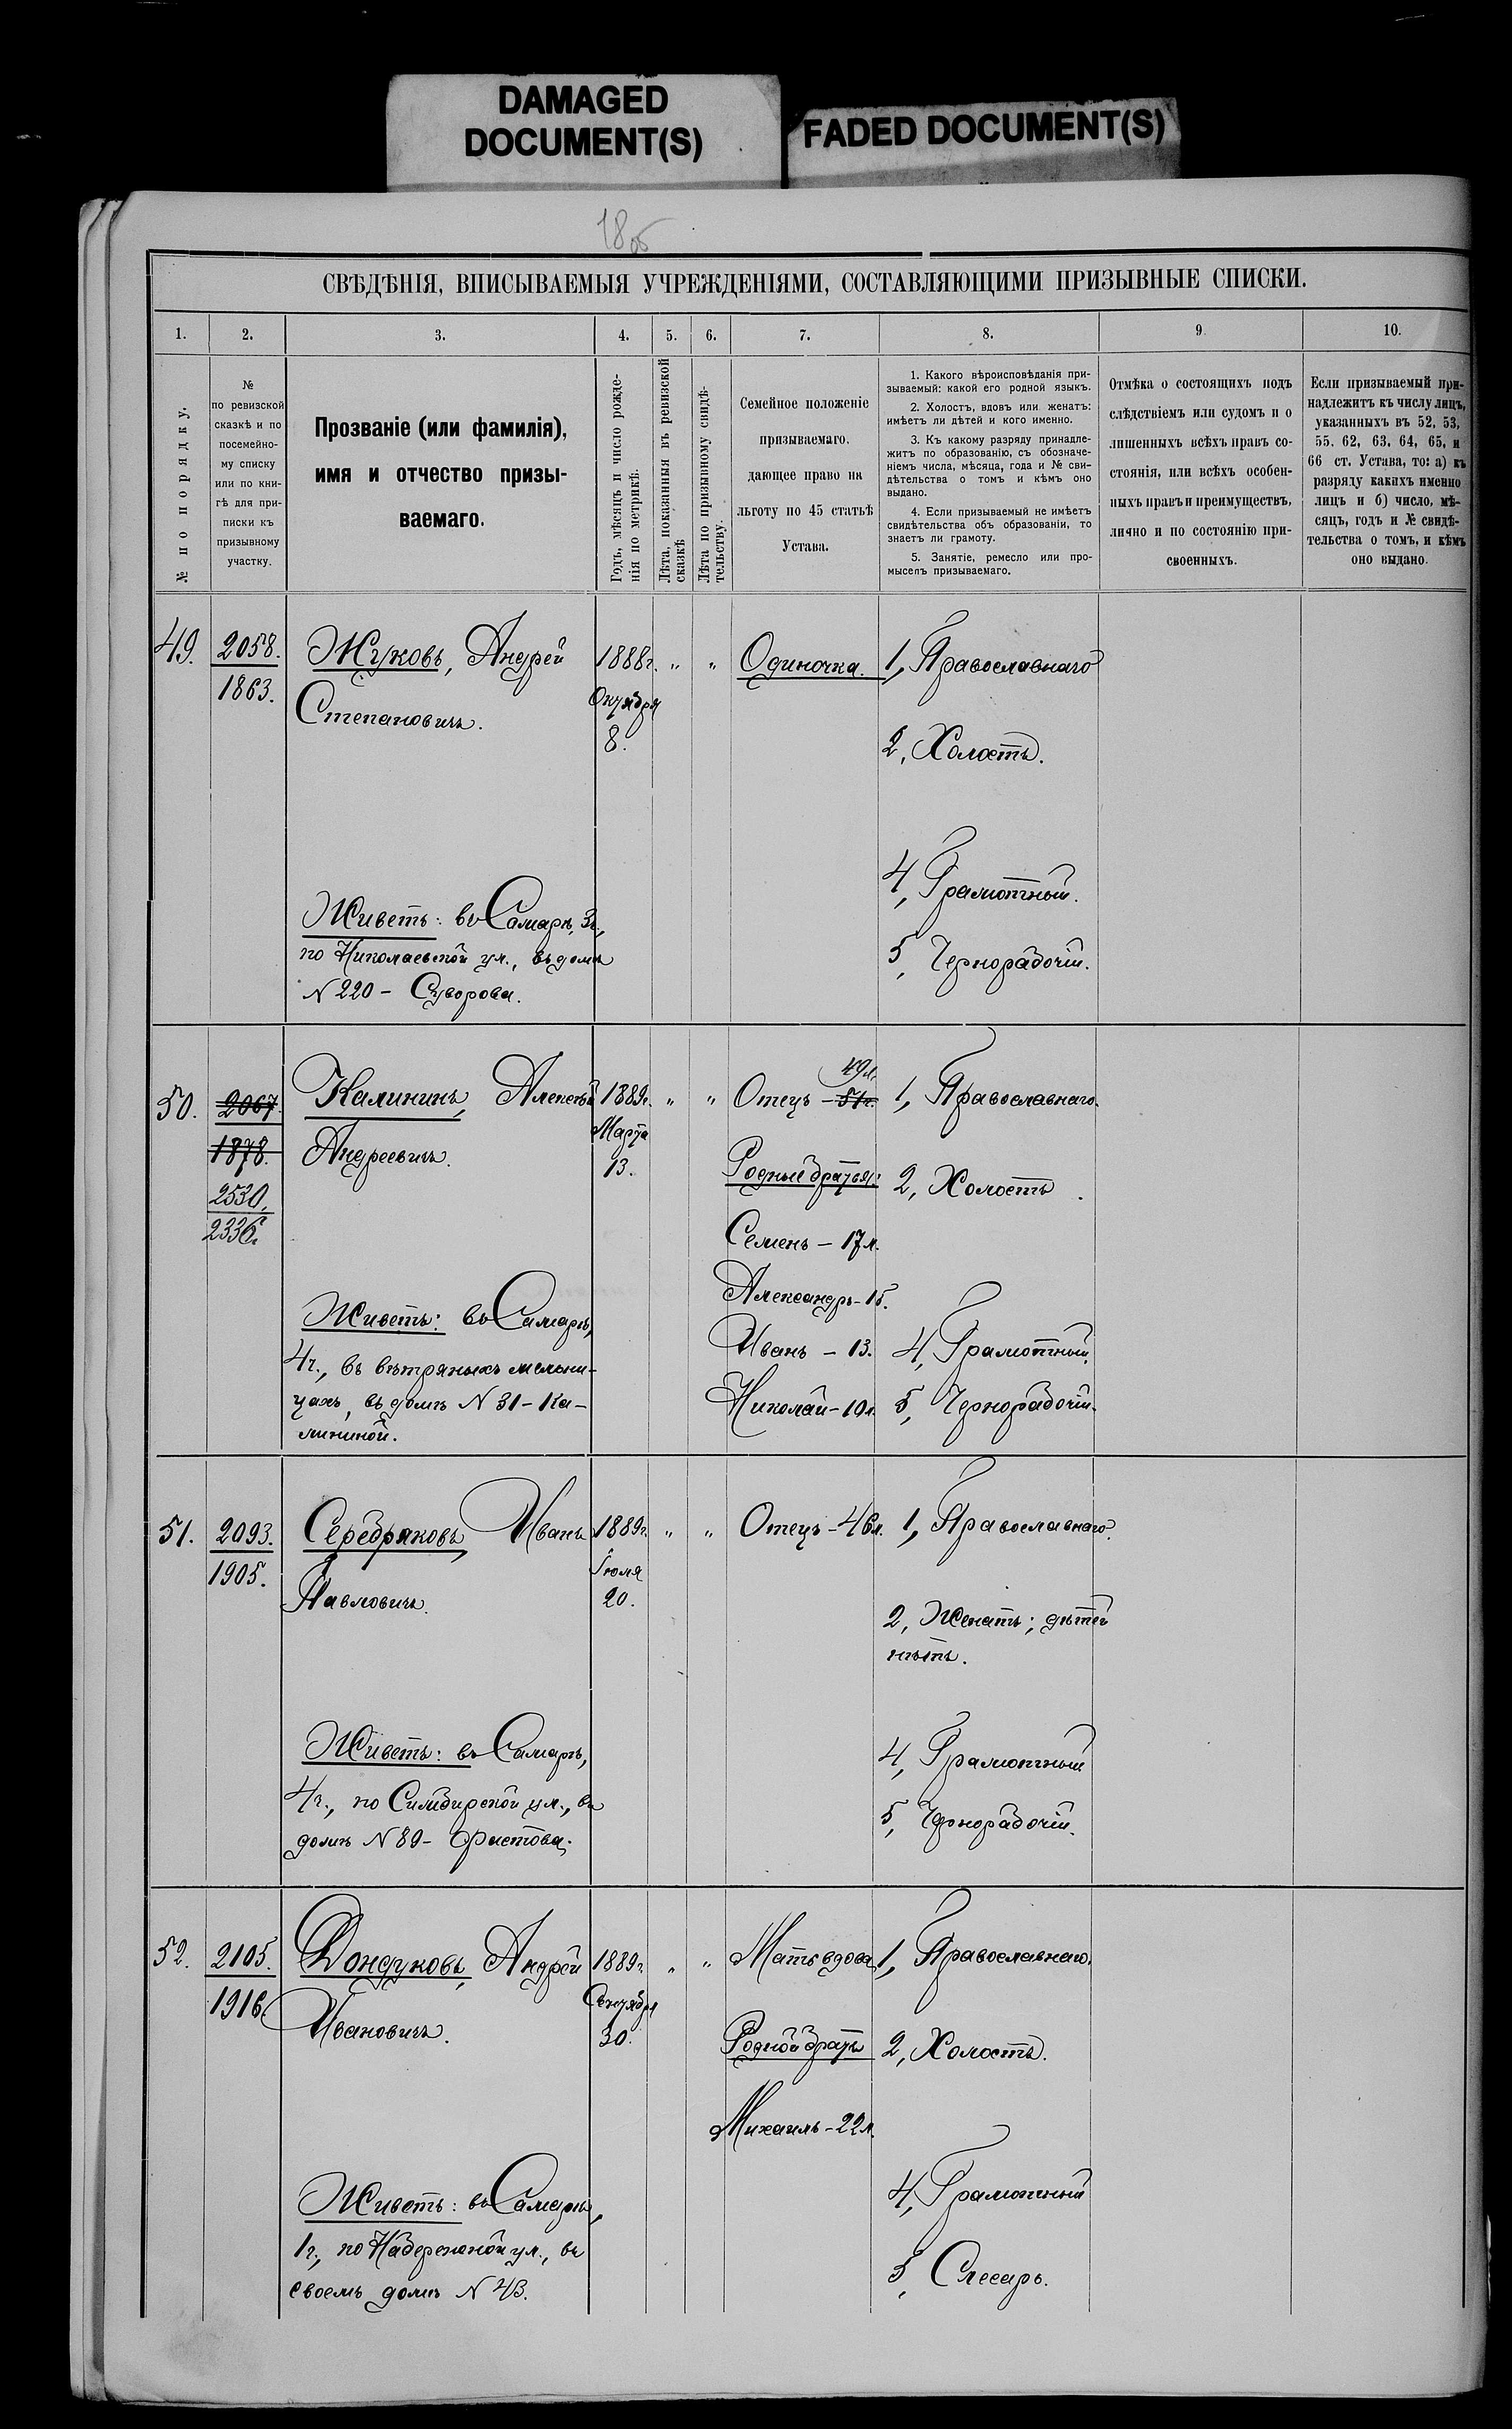 DAMAGED
DOCUMENT(S)
FADED DOCUMENT(S)
СВѢДѢНІЯ, ВПИСЫВАЕМЫЯ УЧРЕЖДЕНІЯМИ, СОСТАВЛЯЮЩИМИ ПРИЗЫВНЫЕ СПИСКИ.
1. 2. 3. 4. 5. 6. 7. 8. 9. 10.
№ по порядку.
№
по ревизской
сказкѣ и по
посемейно-
му списку
или по кни-
гѣ для при-
писки къ
призывному
участку.
Прозваніе (или фамилія),
имя и отчество призы-
ваемаго.
Годъ, мѣсяцъ и число рожде-
нія по метрикѣ.
Лѣта, показанныя въ ревизской
сказкѣ
Лѣта по призывному свидѣ-
тельству.
Семейное положеніе
призываемаго,
дающее право на
льготу по 45 статьѣ
Устава.
1. Какого вѣроисповѣданія при-
зываемый: какой его родной языкъ.
2. Холостъ, вдовъ или женатъ:
имѣетъ ли дѣтей и кого именно.
3. Къ какому разряду принадле-
житъ по образованію, съ обозначе-
ніемъ числа, мѣсяца, года и № сви-
дѣтельства о томъ и кѣмъ оно
выдано.
4. Если призываемый не имѣетъ
свидѣтельства объ образованіи, то
знаетъ ли грамоту.
5. Занятіе, ремесло или про-
мыселъ призываемаго.
Отмѣка о состоящихъ подъ
слѣдствіемъ или судомъ и о
лишенныхъ всѣхъ правъ со-
стоянія, или всѣхъ особен-
ныхъ правъ и преимуществъ,
лично и по состоянію при-
своенныхъ.
Если призываемый при-
надлежитъ къ числу лицъ,
указанныхъ въ 52, 53,
55, 62, 63, 64, 65, и
66 ст. Устава, то: а) къ
разряду какихъ именно
лицъ и б) число, мѣ-
сяцъ, годъ и № свидѣ-
тельства о томъ, и кѣмъ
оно выдано.
49. 2058. Жуковъ, Андрей 1888г. „ „ Одиночка. 1, Православнаго
1863. Степановичъ. Октября
8. 2, Холостъ.
4, Грамотный.
Живетъ: въ Самарѣ, 3ч.,
по Николаевской ул., въ домѣ 5, Чернорабочій.
N 220 - Суворова.
50. 2067. Калининъ, Алексѣй 1889г. „ „ Отецъ - 51г. 49л. 1, Православнаго.
1878. Андреевичъ. Марта
13. Родные братья: 2, Холостъ.
2530.
2336. Семенъ - 17л.
Александръ - 15.
Живетъ: въ Самарѣ, Иванъ - 13. 4, Грамотный.
4ч., въ вѣтряныхъ мельни-
цахъ, въ домѣ N 31 - Ка- Николай - 10л. 5, Чернорабочій.
лининой.
51. 2093. Серебряковъ, Иванъ 1889г. „ „ Отецъ - 46л. 1, Православнаго.
1905. Павловичъ. Іюля
20. 2, Женатъ; дѣтей
нѣтъ.
Живетъ: въ Самарѣ, 4, Грамотный
4ч., по Симбирской ул., въ 5, Чернорабочій.
домѣ N 89 -
52. 2105. Дондуковъ, Андрей 1889г. „ „ Мать вдова 1, Православнаго.
1916. Ивановичъ. Сентября
30. Родной братъ 2, Холостъ.
Михаилъ - 22л.
Живетъ: въ Самарѣ, 4, Грамотный
1ч., по Набережной ул., въ
своемъ домѣ N 43. 5, Слесарь.